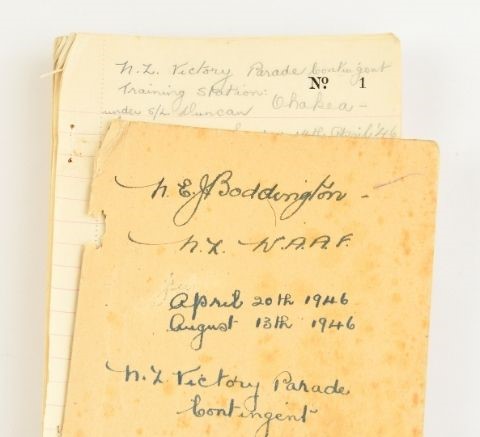 N.Z. Victory Parade Contingent
Nº 1
Training Station: Ohakea -
under S/L Duncan
14th April '46
N. E. J. Boddington -
N.Z. W.A.A.F.
April 20th 1946
August 13th 1946
N.Z Victory Parade
Contingent